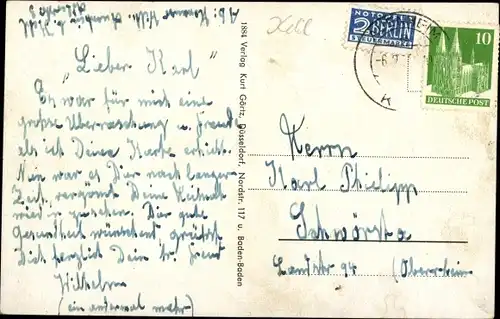 "Lieber Karl"
Es war für mich eine
große Überraschung u. Freude
als ich Deine Karte erhielt.
Nun war es Dir nach langer
Zeit, vergönnt Deine Heimat
wieder zu sehen. Dir gute
Gesundheit wünschend grüßt
Dich herzlich Dein tr. Freund
Wilhelm
(ein andermal mehr)
1884 Verlag Kurt Görtz, Düsseldorf, Nordstr. 117 u. Baden-Baden
NOTOPFER
2 BERLIN
STEUERMARKE
10
DEUTSCHE POST
Herrn
Karl Philipp
Schwörsta
Landstr 94 (Oberrhein)